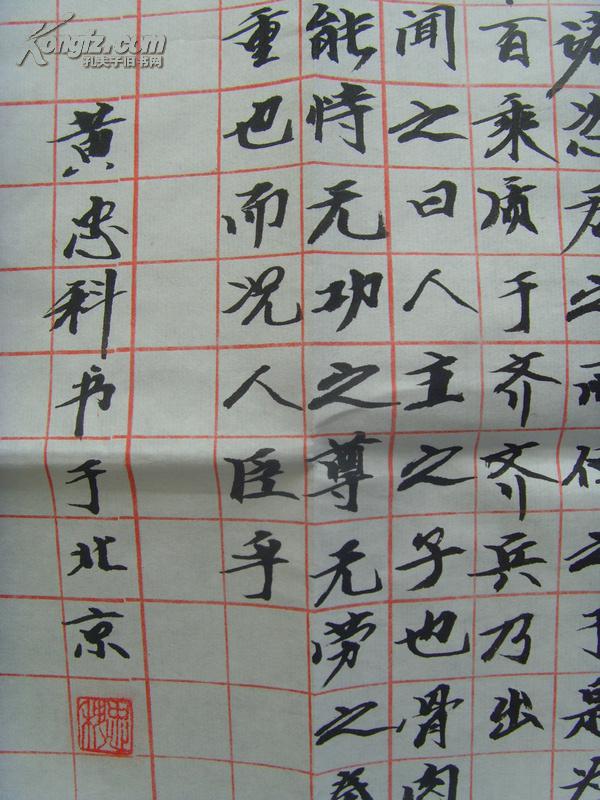 诺恣君之所使之于是为
百乘质于齐齐兵乃出
闻之曰人主之子也骨肉
能恃无功之尊无劳之
重也而况人臣乎
黄忠科书于北京
Kongfz.com
孔夫子旧书网